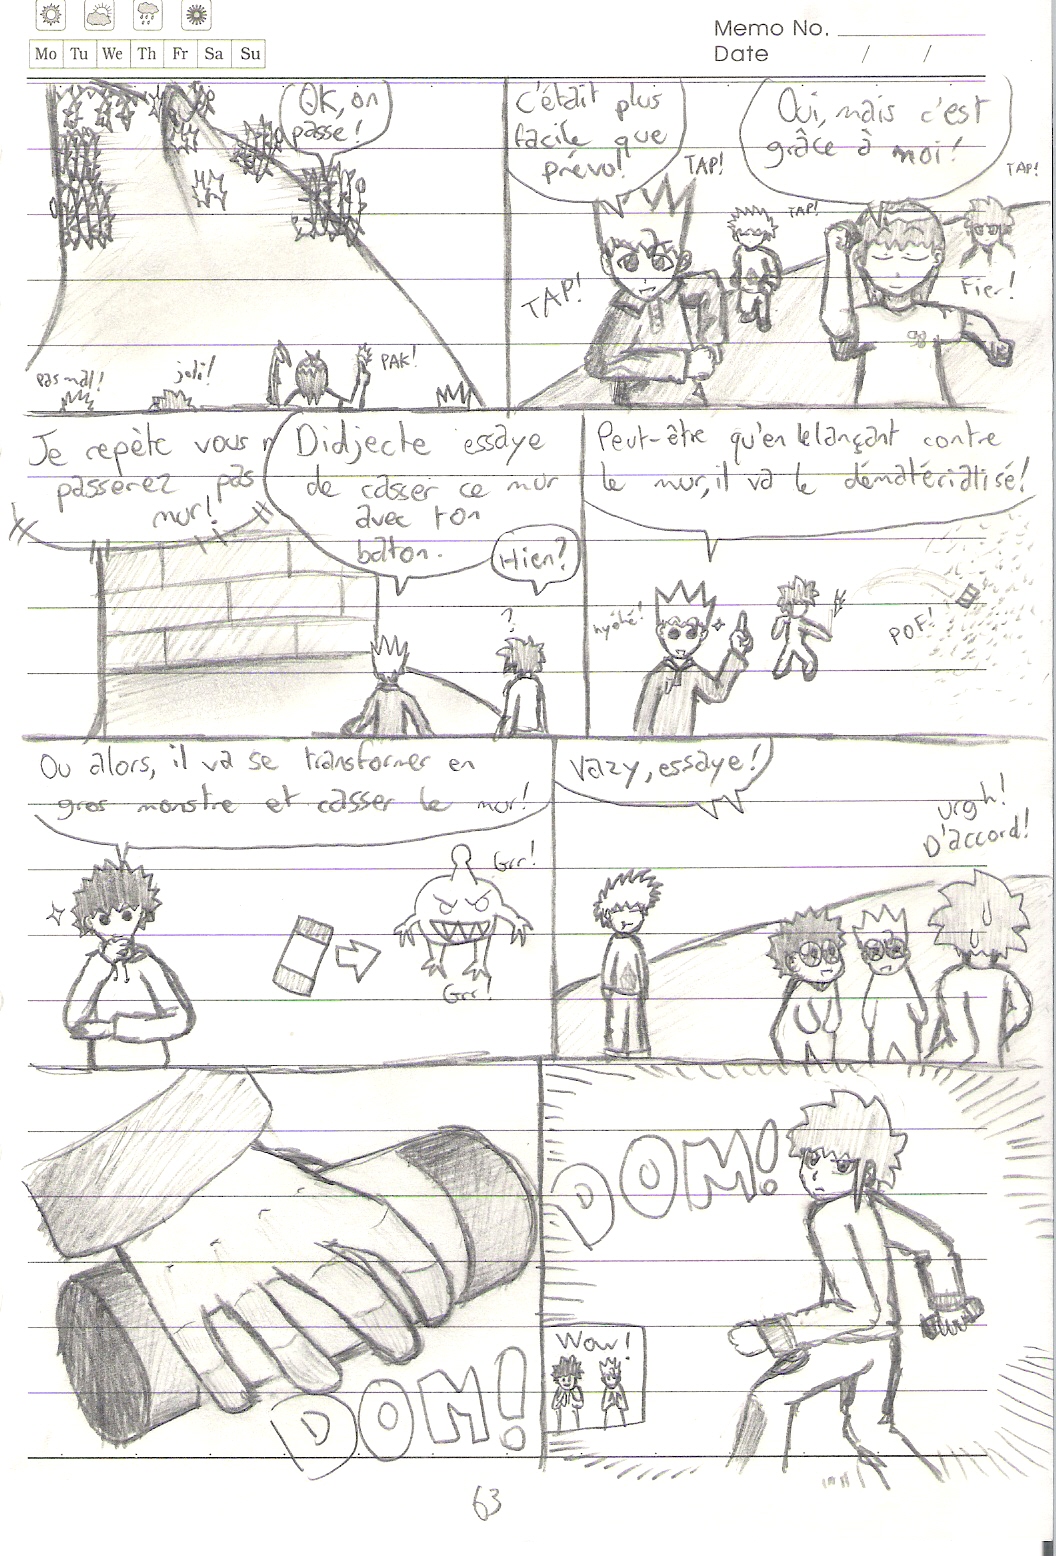 Memo No.
Mo Tu We Th Fr Sa Su
Date / /
OK, on
passe!
pas mal!
joli!
PAK!
C'était plus
facile que
prévu!
TAP!
Oui, mais c'est
grâce à moi!
TAP!
TAP!
TAP!
Fier!
Je repète vous n
passerez pas
mur!
Didjecte essaye
de casser ce mur
avec ton
bâton.
Hien?
?
Peut-être qu'en le lançant contre
le mur, il va le dématérialisé!
hyéhé!
POF!
Ou alors, il va se transformer en
gros monstre et casser le mur!
Grr!
Grr!
Vazy, essaye!
Urgh!
D'accord!
DOM!
DOM!
Wow!
63